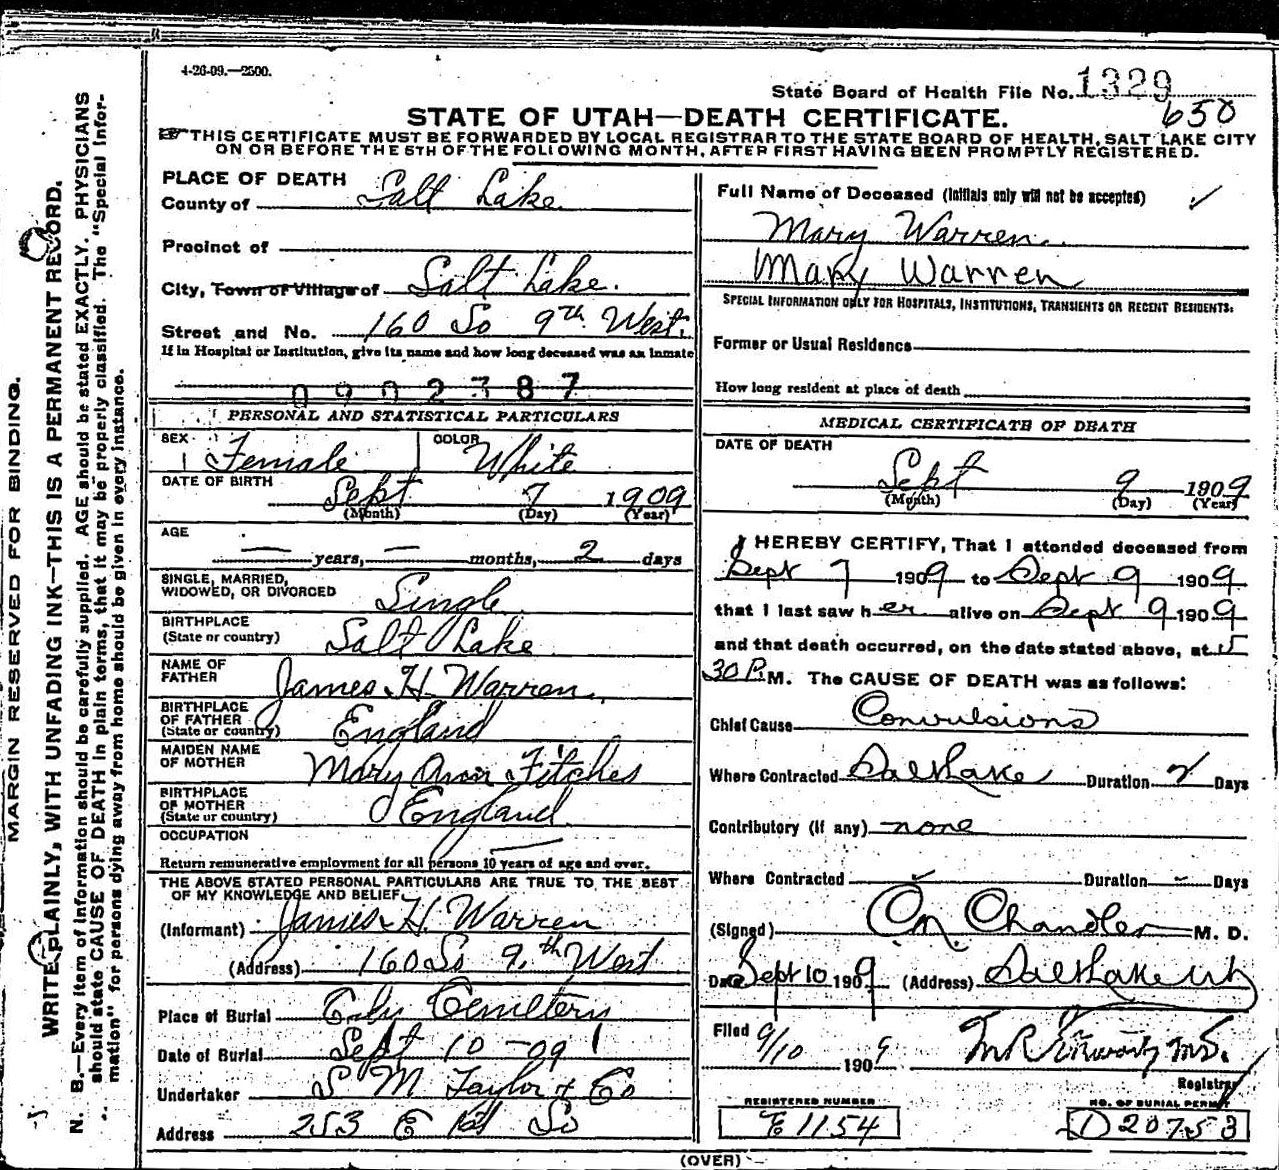 4-26-09.—2500.
State Board of Health File No. 1329
650
STATE OF UTAH—DEATH CERTIFICATE.
THIS CERTIFICATE MUST BE FORWARDED BY LOCAL REGISTRAR TO THE STATE BOARD OF HEALTH, SALT LAKE CITY
ON OR BEFORE THE 5TH OF THE FOLLOWING MONTH, AFTER FIRST HAVING BEEN PROMPTLY REGISTERED.
MARGIN RESERVED FOR BINDING.
WRITE PLAINLY, WITH UNFADING INK—THIS IS A PERMANENT RECORD.
N. B.—Every item of information should be carefully supplied. AGE should be stated EXACTLY. PHYSICIANS
should state CAUSE OF DEATH in plain terms, that it may be properly classified. The "Special Infor-
mation" for persons dying away from home should be given in every instance.
PLACE OF DEATH
County of Salt Lake
Precinct of
City, Town or Village of Salt Lake.
Street and No. 160 So 9th West.
If in Hospital or Institution, give its name and how long deceased was an inmate
0902387
PERSONAL AND STATISTICAL PARTICULARS
SEX Female COLOR White
DATE OF BIRTH
Sept 7 1909
(Month) (Day) (Year)
AGE
— years, — months, 2 days
SINGLE, MARRIED,
WIDOWED, OR DIVORCED Single
BIRTHPLACE
(State or country) Salt Lake
NAME OF
FATHER James H. Warren.
BIRTHPLACE
OF FATHER
(State or country) England
MAIDEN NAME
OF MOTHER Mary Ann Fitches
BIRTHPLACE
OF MOTHER
(State or country) England
OCCUPATION —
Return remunerative employment for all persons 10 years of age and over.
THE ABOVE STATED PERSONAL PARTICULARS ARE TRUE TO THE BEST
OF MY KNOWLEDGE AND BELIEF
(Informant) James H. Warren
(Address) 160 So 9.th West
Place of Burial City Cemetery
Date of Burial Sept 10-09
Undertaker S M Taylor & Co
Address 253 E 1st So
Full Name of Deceased (Initials only will not be accepted)
Mary Warren.
Mary Warren
SPECIAL INFORMATION ONLY FOR HOSPITALS, INSTITUTIONS, TRANSIENTS OR RECENT RESIDENTS:
Former or Usual Residence
How long resident at place of death
MEDICAL CERTIFICATE OF DEATH
DATE OF DEATH
Sept 9 1909
(Month) (Day) (Year)
I HEREBY CERTIFY, That I attended deceased from
Sept 7 1909 to Sept 9 1909
that I last saw her alive on Sept 9 1909
and that death occurred, on the date stated above, at 5
30 P.M. The CAUSE OF DEATH was as follows:
Chief Cause Convulsions
Where Contracted Salt Lake Duration 2 Days
Contributory (if any) none
Where Contracted Duration – Days
(Signed) C. M. Chandler M. D.
Date Sept 10 1909 (Address) Salt Lake Ut
Filed 9/10 1909
Registrar
REGISTERED NUMBER
E 1154
NO. OF BURIAL PERMIT
D 20753
(OVER)